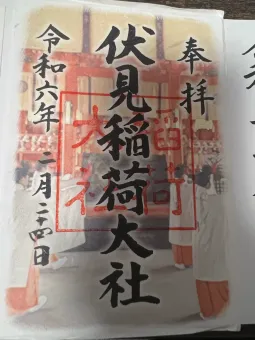 奉拝
伏見稲荷大社
令和六年 二月二十四日